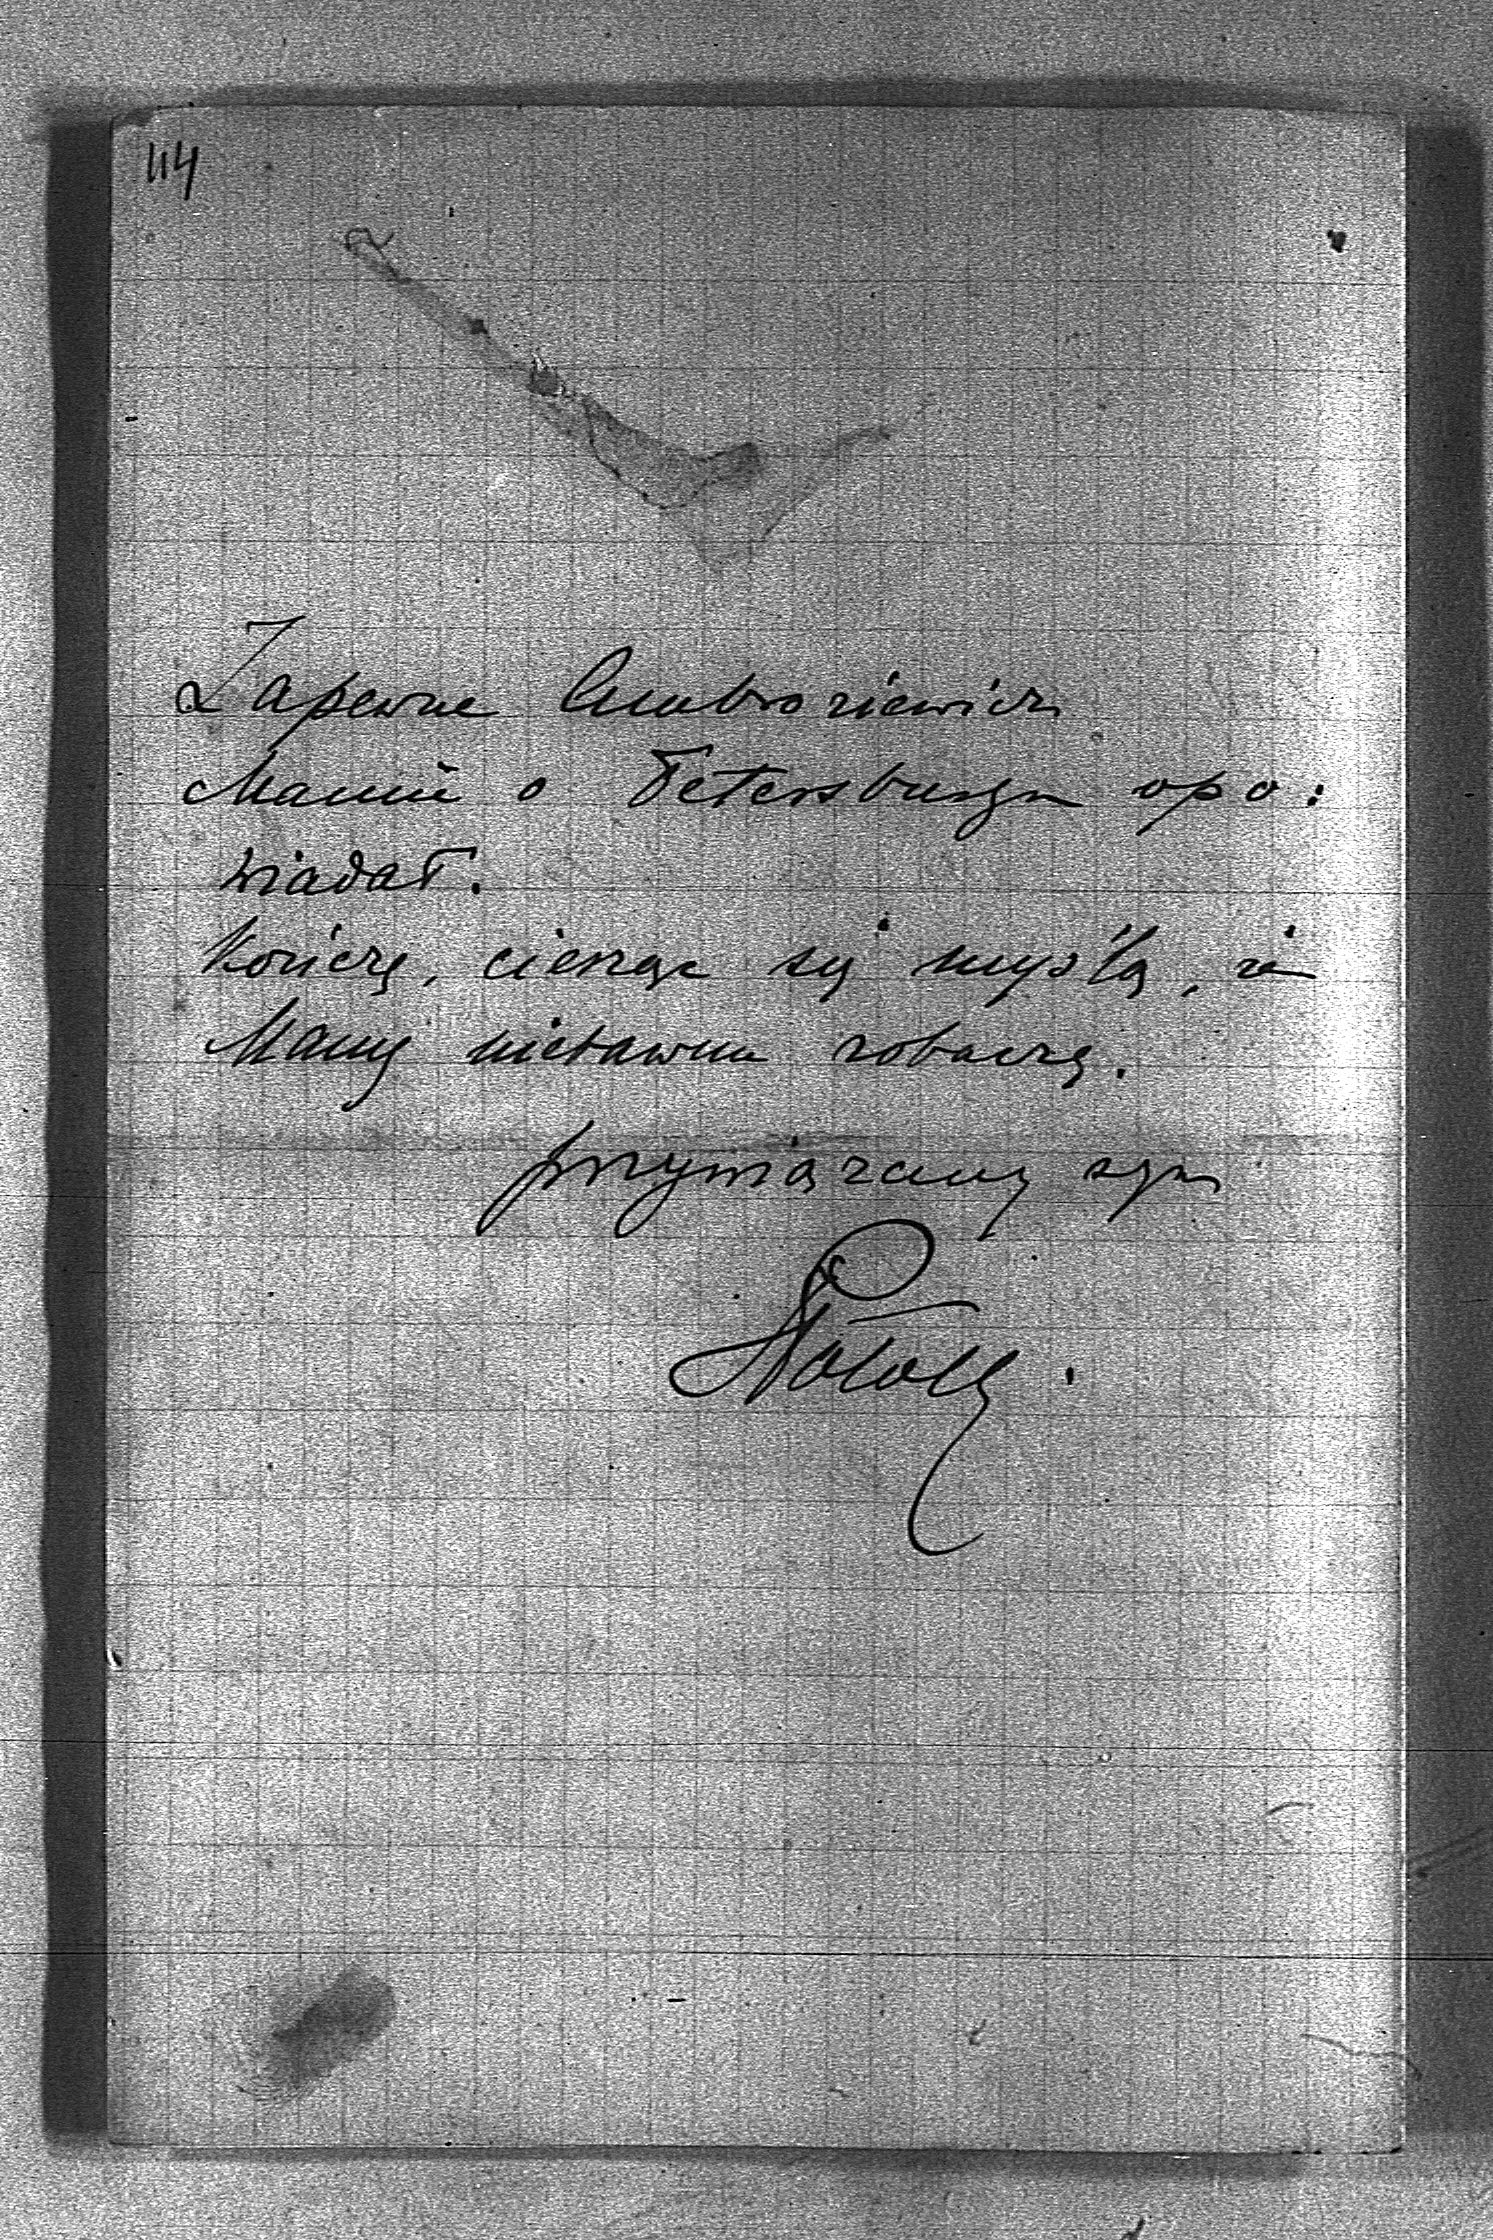 114
Zapewne Ambroziewicz
Mamie o Petersburgu opo:
wiadał.
Kończę, ciesząc się myślą, że
Mamę niedawno zobaczę.
przywiązany syn